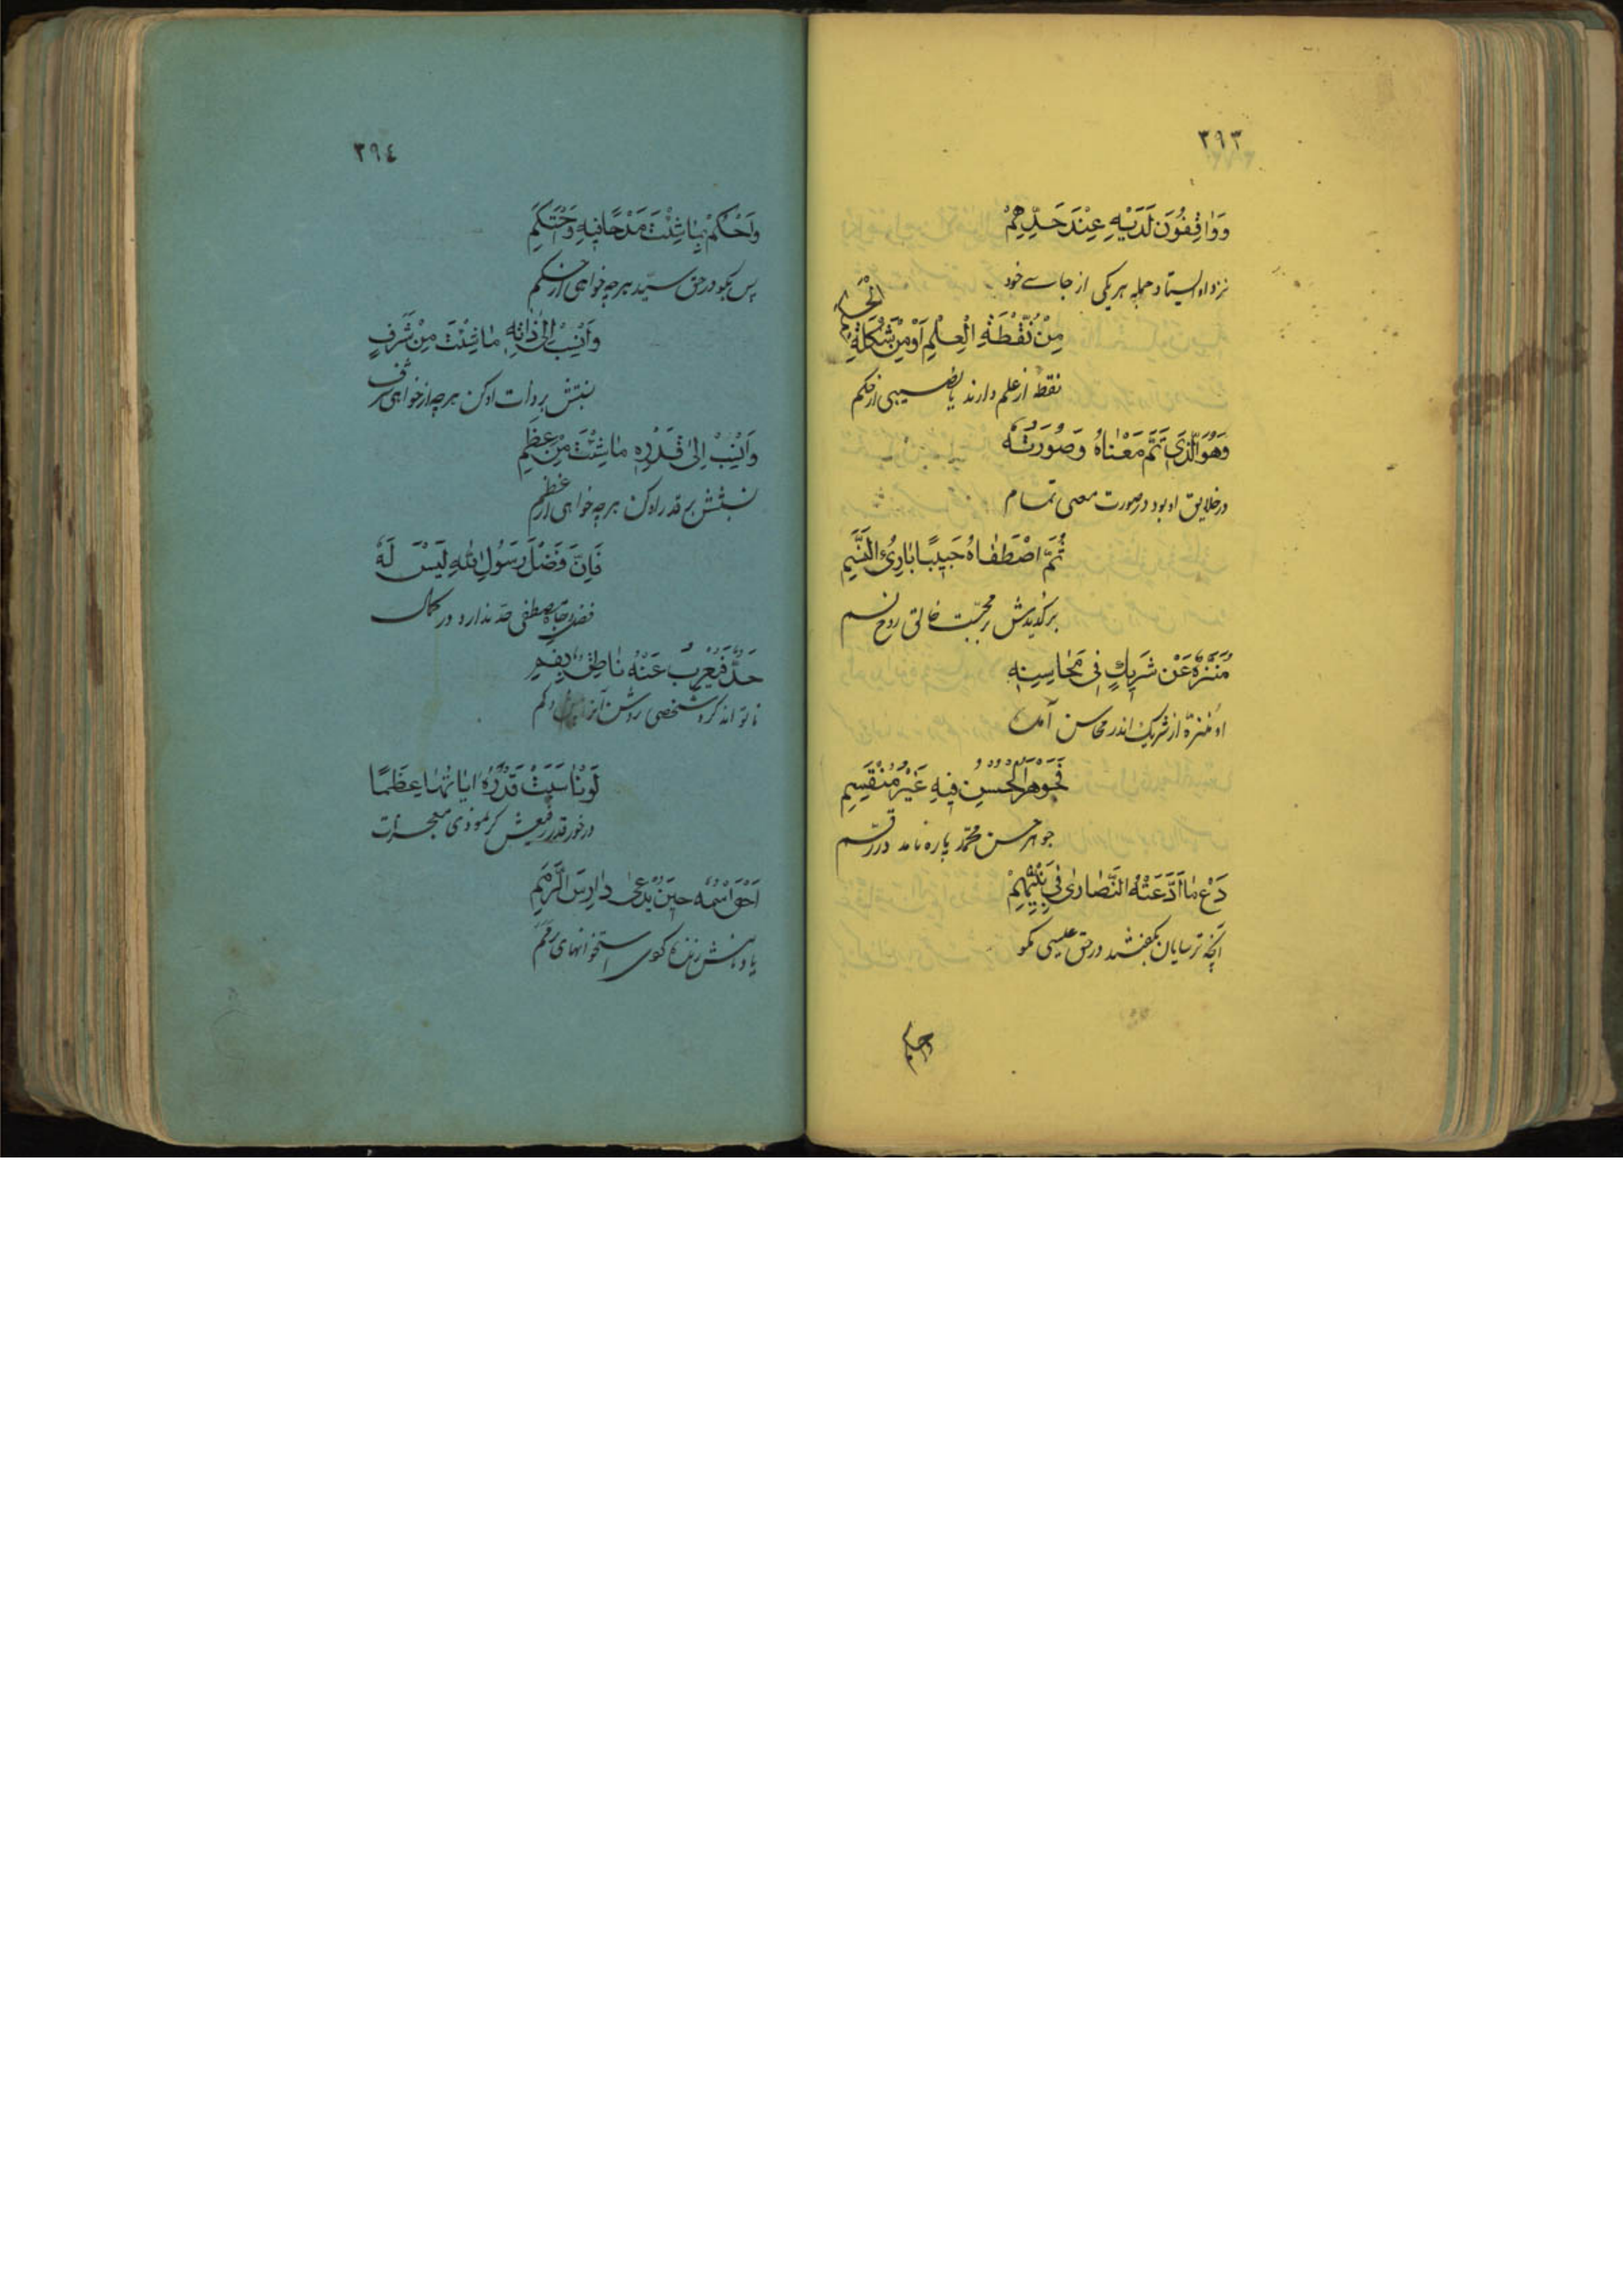 ٣٩٣
وَوٰاقِفُونَ لَدَيْهِ عِنْدَ حَدِّهِمْ
نزد او استاد جمله هر یکی از جاے خود
مِنْ نُقْطَةِ الْعِلْمِ اَوْ مِنْ شَكْلَةِ الْحِكَمِ
نقطه از علم دارند یا نصیبی از حکم
وَهُوَ الَّذِي تَمَّ مَعْنٰاهُ وَصُورَتُهُ
در خلایق او بود در صورت معنی تمام
ثُمَّ اصْطَفٰاهُ حَبِيبًا بٰارِئُ النَّسَمِ
برگزیدش بر محبت خالق روح نسم
مُنَزَّهٌ عَنْ شَرِيكٍ فِي مَحٰاسِنِهِ
او منزّه از شریک اندر محاسن آمدن
فَجَوْهَرُ الْحُسْنِ فِيهِ غَيْرُ مُنْقَسِمِ
جوهر حسن محمّد پاره نامد در قسم
دَعْ مٰا ادَّعَتْهُ النَّصٰارىٰ فِي نَبِيِّهِمْ
آنچه ترسایان بگفتند در حق عیسی مگو
واحکم
٣٩٤
وَاحْكُمْ بِمٰا شِئْتَ مَدْحًا فِيهِ وَحْتَكِمِ
پس بگو در حق سیّد هر چه خواهی از حکم
وَانْسُبْ اِلىٰ ذٰاتِهِ مٰا شِئْتَ مِنْ شَرَفٍ
نسبتش بر ذات او کن هر چه از خواهی شرف
وَانْسُبْ اِلىٰ قَدْرِهِ مٰا شِئْتَ مِنْ عِظَمِ
نسبتش بر قدر او کن هر چه خواهی از عظم
فَاِنَّ فَضْلَ رَسُولِ اللهِ لَيْسَ لَهُ
فضل و جاه مصطفی حدّ ندارد در کمال
حَدٌّ فَيُعْرِبَ عَنْهُ نٰاطِقٌ بِفَمِ
تا تواند کرد شخصی روشن آنرا
لَوْ نٰاسَبَتْ قَدْرَهُ اٰيٰاتُهٰا عِظَمًا
در خور قدر رفیعش گر نمودی معجزات
اَحْيَ اسْمُهُ حِينَ يُدْعىٰ دٰارِسَ الرِّمَمِ
یاد نامش زنده کردی استخوانهای رمم